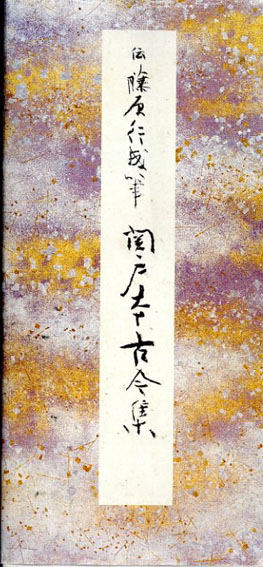 伝藤原行成筆 関戸本古今集